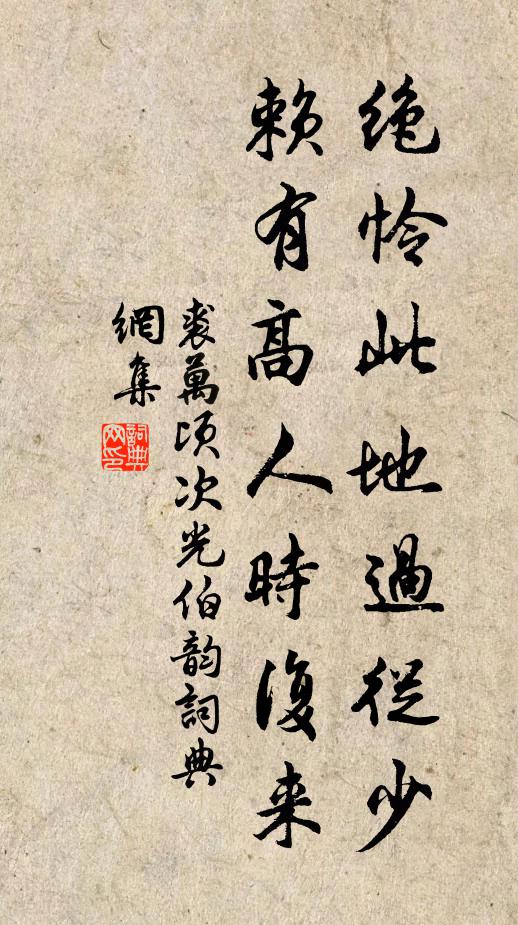 绝怜此地過從少
赖有高人時復来
裘萬顷次光伯韵詞典
網集
詞典
网印